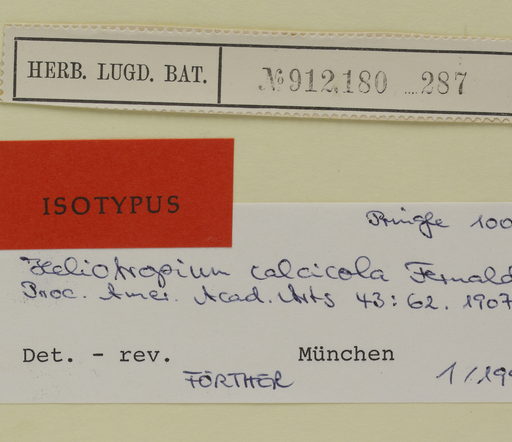 HERB. LUGD. BAT. № 912,180 ....287
ISOTYPUS
Pringle 100
Heliotropium calcicola Fernald
Proc. Amer. Acad. Arts 43: 62. 1907
Det. - rev. München
FÖRTHER 1/199